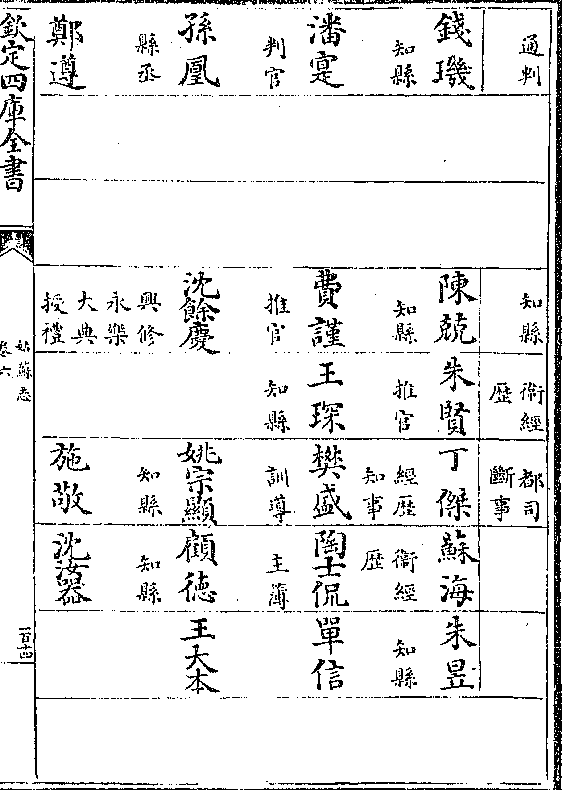 通判 知縣 衞經歴 都司斷事
錢璣 陳兢 朱賢 丁傑 蘇海 朱昱
知縣 知縣 推官 經歴知事 衞經歴 知縣
潘寔 費謹 王琛 樊盛 陶士侃 單信
判官 推官 知縣 訓導 主簿
孫凰 沈餘慶 姚宗顯 顧德 王大本
縣丞 興修永樂大典授禮 知縣 知縣
鄭遵 施敬 沈汝器
欽定四庫全書
姑蘇志
卷六
一百十四